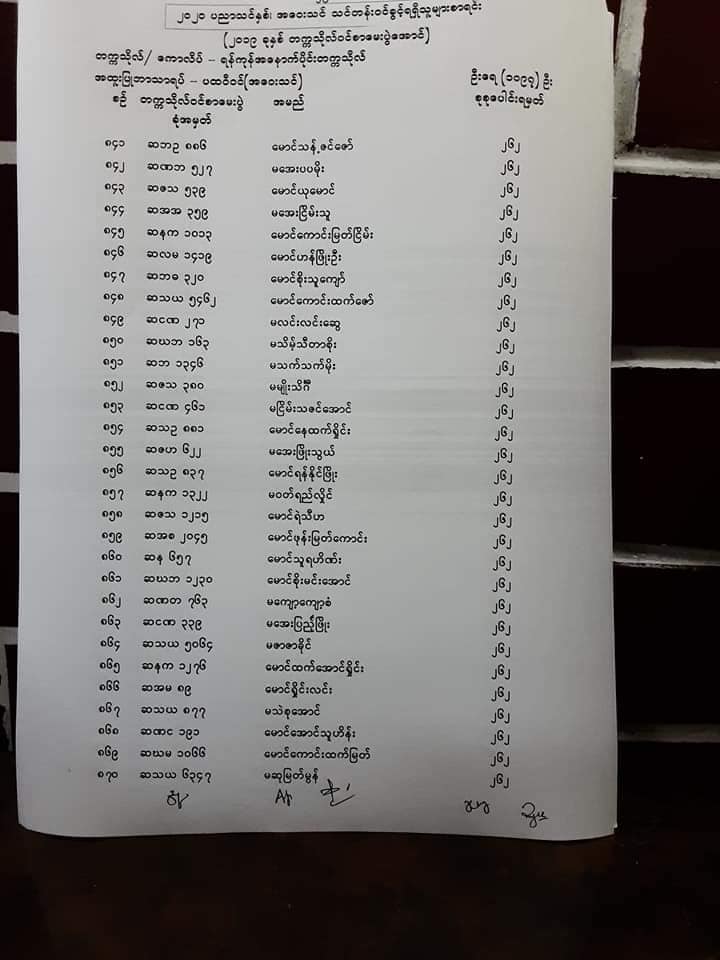 ၂၀၂၀ ပညာသင်နှစ်၊ အဝေးသင် သင်တန်းဝင်ခွင့်ရရှိသူများစာရင်း
(၂၀၁၉ ခုနှစ် တက္ကသိုလ်ဝင်စာမေးပွဲအောင်)
တက္ကသိုလ်/ ကောလိပ် – ရန်ကုန်အနောက်ပိုင်းတက္ကသိုလ်
အထူးပြုဘာသာရပ် – ပထဝီဝင်(အဝေးသင်) ဦးရေ (၁၁၉၇) ဦး
စဉ် တက္ကသိုလ်ဝင်စာမေးပွဲ အမည် စုစုပေါင်းရမှတ်
ခုံအမှတ်
၈၄၁ ဆဘဥ ၈၈၆ မောင်သန့်ဇင်ဇော် ၂၆၂
၈၄၂ ဆဏဘ ၅၂၇ မအေးပပမိုး ၂၆၂
၈၄၃ ဆဇသ ၅၃၉ မောင်ယုမောင် ၂၆၂
၈၄၄ ဆအအ ၃၅၉ မအေးငြိမ်းသူ ၂၆၂
၈၄၅ ဆနက ၁၀၁၃ မောင်ကောင်းမြတ်ငြိမ်း ၂၆၂
၈၄၆ ဆလမ ၁၄၁၉ မောင်ဟန်ဖြိုးဦး ၂၆၂
၈၄၇ ဆဘဓ ၃၂၀ မောင်စိုးသူကျော် ၂၆၂
၈၄၈ ဆသယ ၅၄၆၂ မောင်ကောင်းထက်ဇော် ၂၆၂
၈၄၉ ဆငဏ ၂၇၁ မလင်းလင်းဆွေ ၂၆၂
၈၅၀ ဆဃဘ ၁၆၃ မသိမ့်သီတာစိုး ၂၆၂
၈၅၁ ဆဘ ၁၃၄၆ မသက်သက်မိုး ၂၆၂
၈၅၂ ဆဇသ ၃၈၀ မမျိုးသိင်္ဂီ ၂၆၂
၈၅၃ ဆငဏ ၄၆၁ မငြိမ်းသဇင်အောင် ၂၆၂
၈၅၄ ဆသဥ ၈၈၁ မောင်နေထက်ရှိုင်း ၂၆၂
၈၅၅ ဆဇဟ ၆၂၂ မအေးဖြိုးသွယ် ၂၆၂
၈၅၆ ဆသဥ ၈၃၇ မောင်ရန်နိုင်ဖြိုး ၂၆၂
၈၅၇ ဆနက ၁၃၂၂ မဝတ်ရည်လှိုင် ၂၆၂
၈၅၈ ဆဇသ ၁၂၁၅ မောင်ရဲသီဟ ၂၆၂
၈၅၉ ဆအစ ၂၀၄၅ မောင်ဖုန်းမြတ်ကောင်း ၂၆၂
၈၆၀ ဆန ၆၅၇ မောင်သူရဟိဏ်း ၂၆၂
၈၆၁ ဆဃဘ ၁၂၃၀ မောင်စိုးမင်းအောင် ၂၆၂
၈၆၂ ဆဏတ ၇၆၃ မကျော့ကျော့စံ ၂၆၂
၈၆၃ ဆငဏ ၃၃၉ မအေးပြည့်ဖြိုး ၂၆၂
၈၆၄ ဆသယ ၅၀၆၄ မဇာဇာခိုင် ၂၆၂
၈၆၅ ဆနက ၁၂၇၆ မောင်ထက်အောင်ရှိုင်း ၂၆၂
၈၆၆ ဆအမ ၈၉ မောင်ရှိုင်းလင်း ၂၆၂
၈၆၇ ဆသယ ၈၇၇ မသဲစုအောင် ၂၆၂
၈၆၈ ဆဏင ၁၉၁ မောင်အောင်သူဟိန်း ၂၆၂
၈၆၉ ဆဃမ ၁၀၆၆ မောင်ကောင်းထက်မြတ် ၂၆၂
၈၇၀ ဆသယ ၆၃၄၇ မဆုမြတ်မွန် ၂၆၂